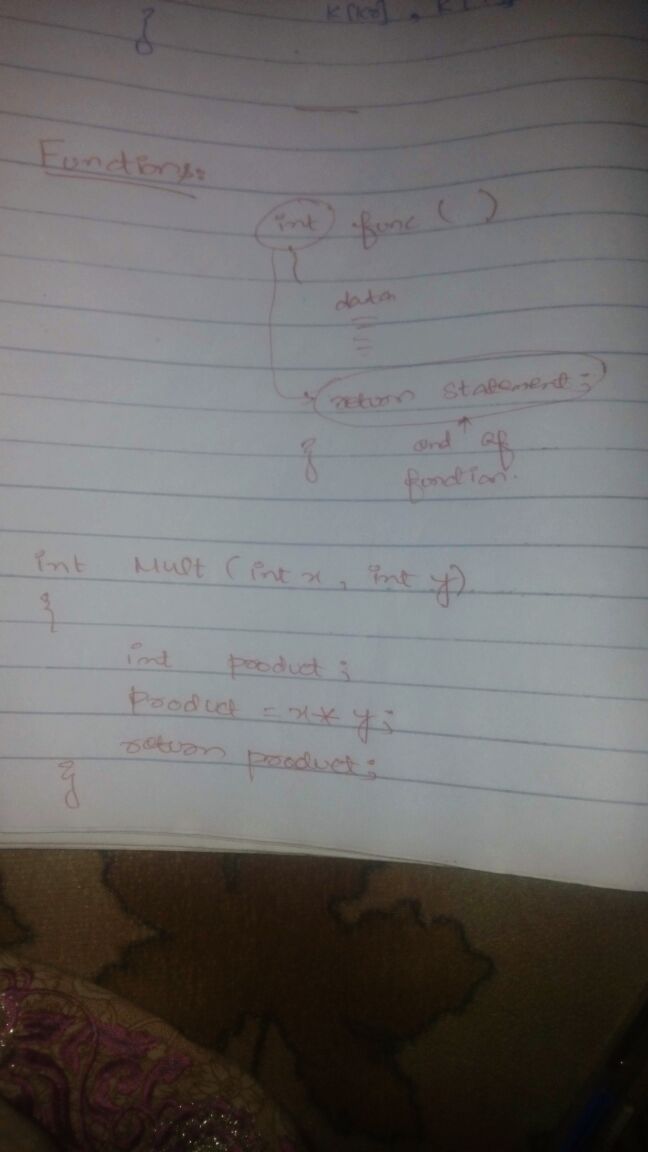 }
Functions:
int func ( )
{
data
return statement;
}
end of
function.
int Mult (int x, int y)
{
int product;
product = x * y;
return product;
}